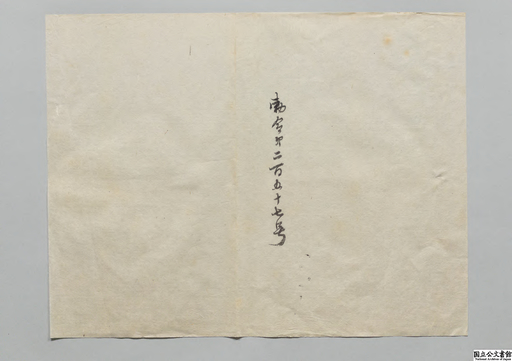 勅令第二百五十七号
国立公文書館
National Archives of Japan